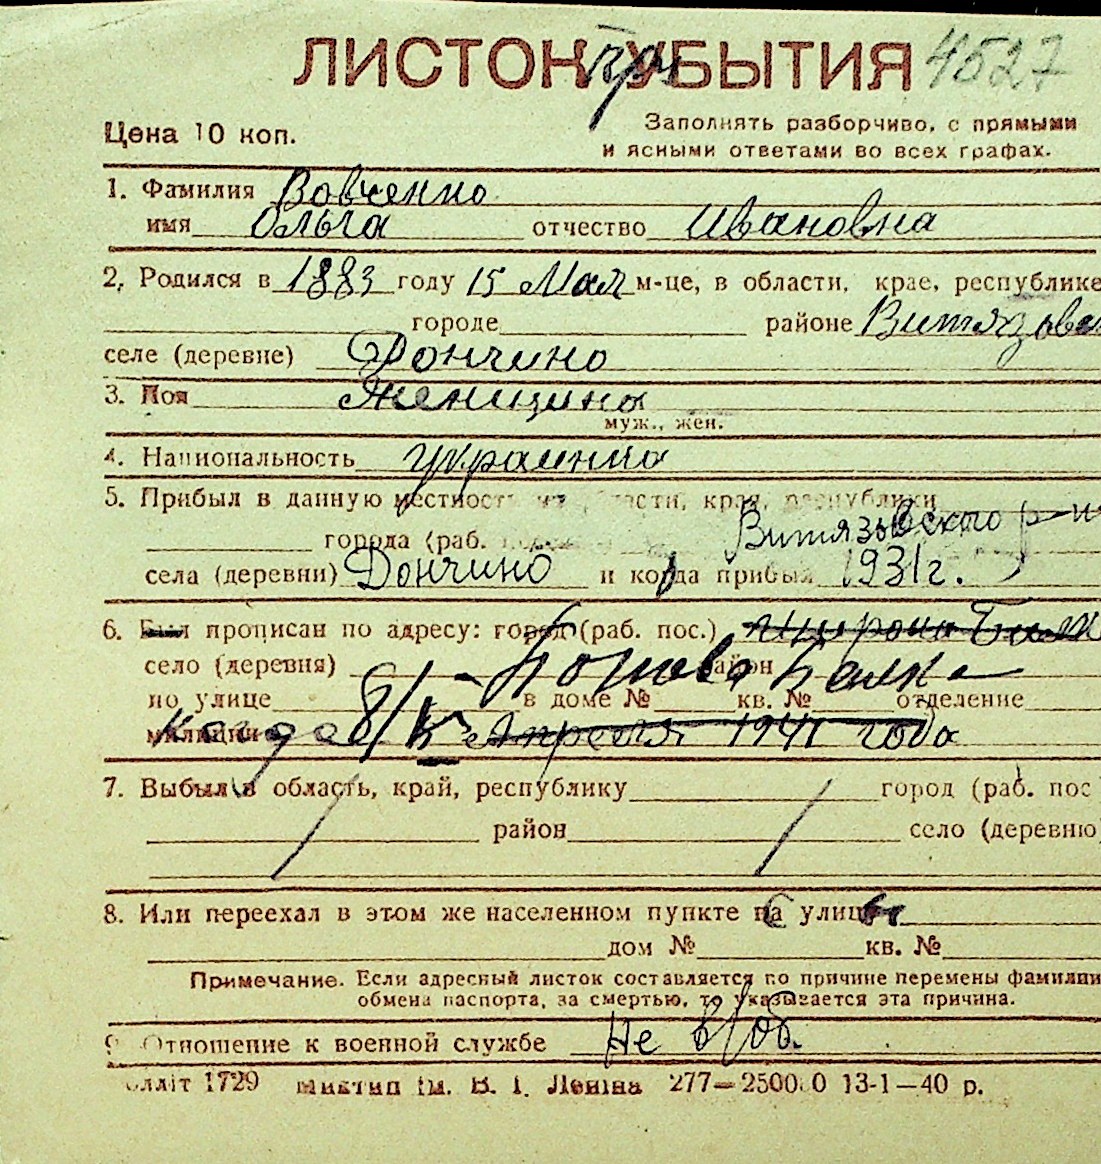 ЛИСТОК при УБЫТИЯ 4527
Цена 10 коп.
Заполнять разборчиво, с прямыми
и ясными ответами во всех графах.
1. Фамилия Вовченко
имя Ольга отчество Ивановна
2. Родился в 1883 году 15 Мая м-це, в области, крае, республике
городе районе Витязовск
селе (деревне) Дончино
3. Пол Женщина
муж., жен.
4. Национальность украинка
5. Прибыл в данную местность из области, края, республики
города (раб. Витязовского р-н
села (деревни) Дончино и когда прибыл 1931 г.
6. Был прописан по адресу: город (раб. пос.) Широко Балк
село (деревня) район Балка
по улице в доме № кв. № отделение
милиции когда 8/V Апреля 1941 года
7. Выбыл в область, край, республику город (раб. пос
район село (деревню)
8. Или переехал в этом же населенном пункте на улицу
дом № кв. №
Примечание. Если адресный листок составляется по причине перемены фамилии
обмена паспорта, за смертью, то указывается эта причина.
9 Отношение к военной службе Не в/об.
олліт 1729 Миктип ім. В. І. Леніна 277—25000 13-1—40 р.